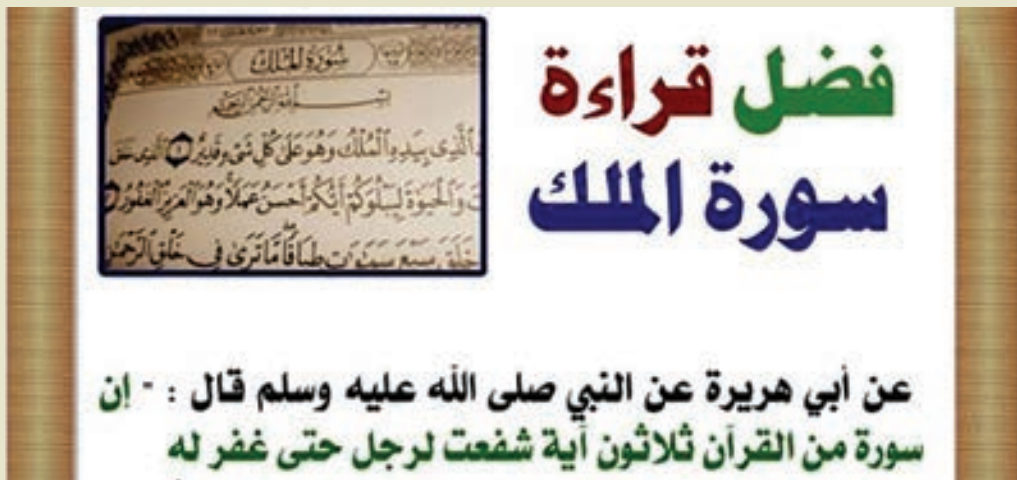 فضل قراءة
سورة الملك
سُورَةُ الْمُلْكِ
بِسْمِ اللَّهِ الرَّحْمَٰنِ الرَّحِيمِ
الَّذِى بِيَدِهِ الْمُلْكُ وَهُوَ عَلَىٰ كُلِّ شَىْءٍ قَدِيرٌ ١ الَّذِى خَلَقَ
وَالْحَيَوٰةَ لِيَبْلُوَكُمْ أَيُّكُمْ أَحْسَنُ عَمَلًا وَهُوَ الْعَزِيزُ الْغَفُورُ
خَلَقَ سَبْعَ سَمَٰوَٰتٍ طِبَاقًا مَّا تَرَىٰ فِى خَلْقِ الرَّحْمَٰنِ
عن أبي هريرة عن النبي صلى الله عليه وسلم قال : - إن
سورة من القرآن ثلاثون آية شفعت لرجل حتى غفر له